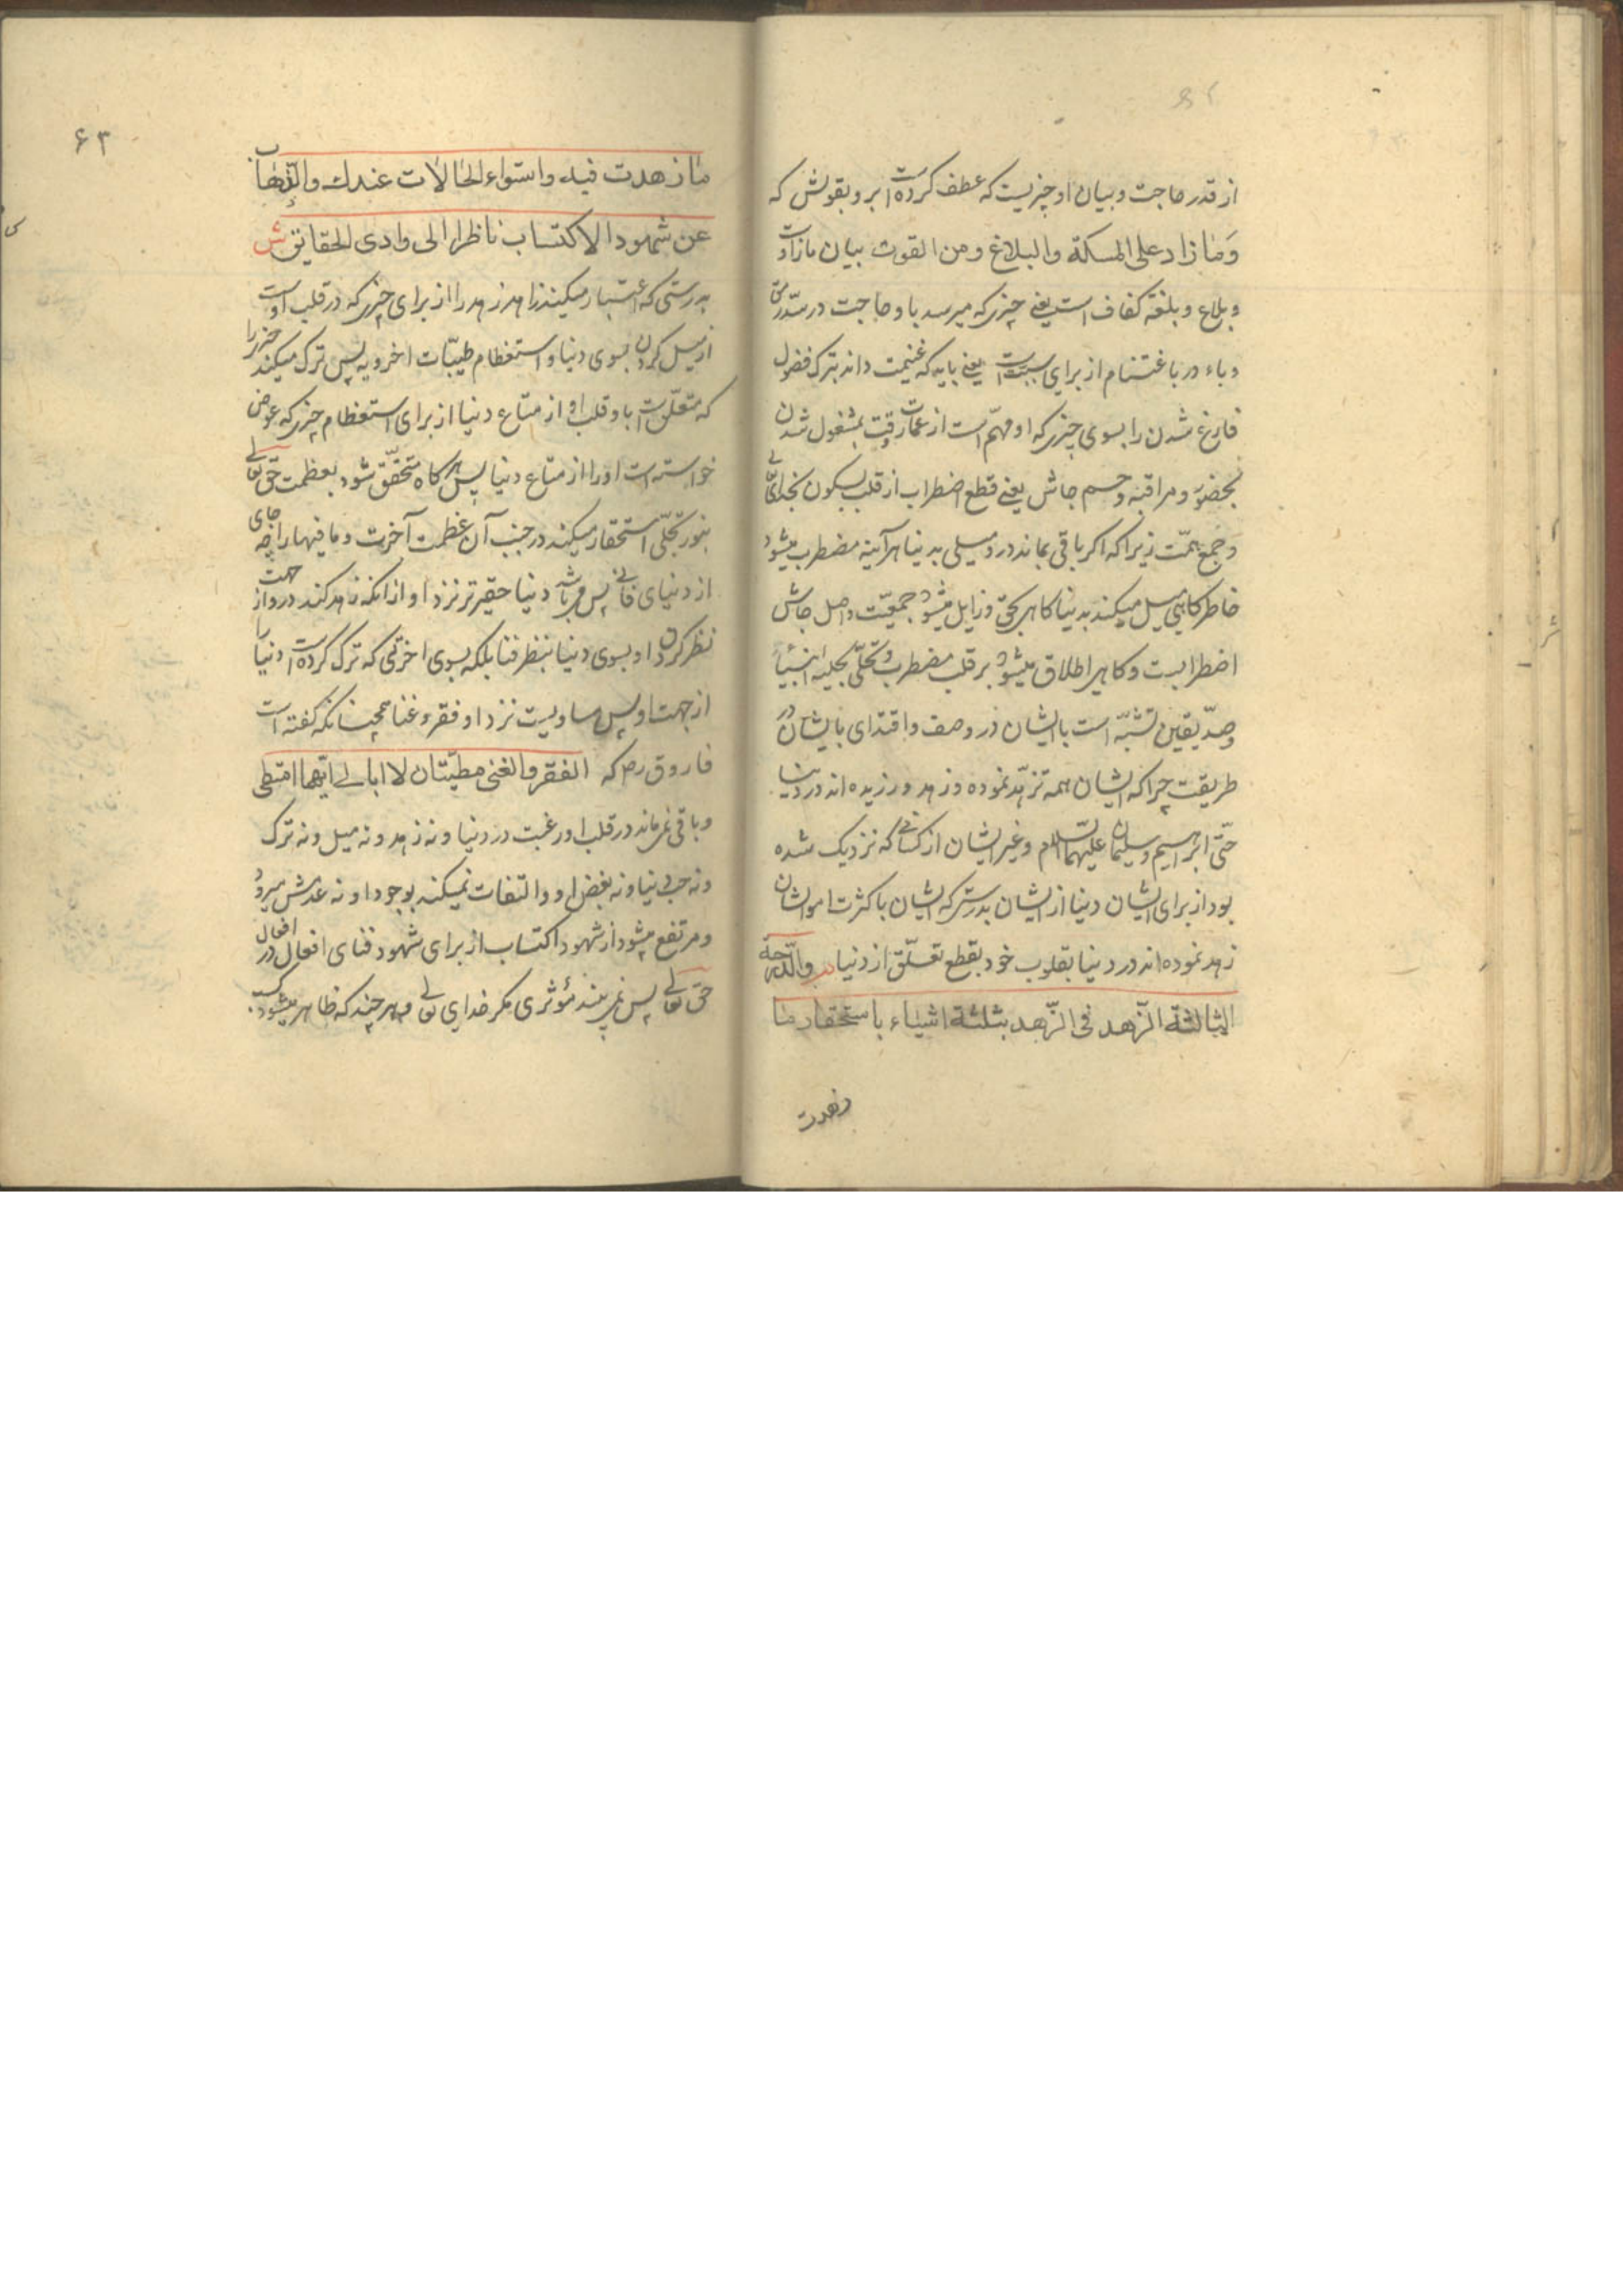 از قدر حاجت و بیان او چیزیست که عطف کرده است ابر و بقولش که
وَمَا زاد علی المسکة والبلاغ ومن القوت بیان ما زاد است
و بلاغ و بلغة کفاف است یعنی چیزی که میرسد باو حاجت در سدّ رمق
و باء در باغتنام از برای سببیت است یعنی باید که غنیمت داند بترک فضول
فارغ شدن را بسوی چیزی که او مهمّ است از عمارت وقت بمشغول شدن
بحضور و مراقبه و حسم جاش یعنی قطع اضطراب از قلب بسکون بخدای تعالی
و جمع همّت زیرا که اکر باقی بماند در و میلی بدنیا هرآینه مضطرب میشود
خاطر کاهی میل میکند بدنیا کاهی بحق و زایل میشود جمعیّت و اصل جاش
اضطرابست و کاهی اطلاق میشود بر قلب مضطرب و تحلّی بحلیه انبیا
و صدّیقین تشبّه است بایشان در وصف و اقتدای بایشان در
طریقت چرا که ایشان همه تزهّد نموده و زهد ورزیده اند در دنیا
حتّی ابراهیم و سلیمان علیهما السلام و غیر ایشان از کسانی که نزدیک شده
بود از برای ایشان دنیا از ایشان بدرستی که ایشان با کثرت اموالشان
زهد نموده اند در دنیا بقلوب خود بقطع تعلّق از دنیا م والدّرجة
الثالثة الزّهد فی الزّهد بثلثة اشیاء باستحقار ما
زهدت
۶۳
ما زهدت فیه واستواء الحالات عندك والذّهاب
عن شهود الاکتساب ناظرا الی وادی الحقایق ش
بدرستی که اعتبار میکند زاهد زهد را از برای چیزی که در قلب اوست
از میل کردن بسوی دنیا و استعظام طیبّات اخرویه پس ترک میکند چیزی را
که متعلّق است باو قلب او از متاع دنیا از برای استعظام چیزی که عوض
خواسته است او را از متاع دنیا پس هرکاه متحقّق شود بعظمت حق تعالی
بنور تجلّی استحقار میکند در جنب آن عظمت آخرت و ما فیها را چه جای
از دنیای فانی پس می باشد دنیا حقیرتر نزد او از آنکه زاهد کند در و از جهت
نظر کردن او بسوی دنیا بنظر فنا بلکه بسوی اخرتی که ترک کرده است دنیا را
از جهت او پس مساویست نزد او فقر و غنا همچنانکه کفته است
فاروق رض که الفقر والغنی مطیّتان لا ابالی ایّهما امتطی
و باقی نمی ماند در قلب او رغبت در دنیا و نه زهد و نه میل و نه ترک
و نه حب دنیا و نه بغض او و التفات نمیکند بوجود او و نه عدمش میرود
و مرتفع میشود از شهود اکتساب از برای شهود فنای افعال در افعال
حق تعالی پس نمی بیند مؤثری مکر خدای تعالی و هرچند که ظاهر میشود